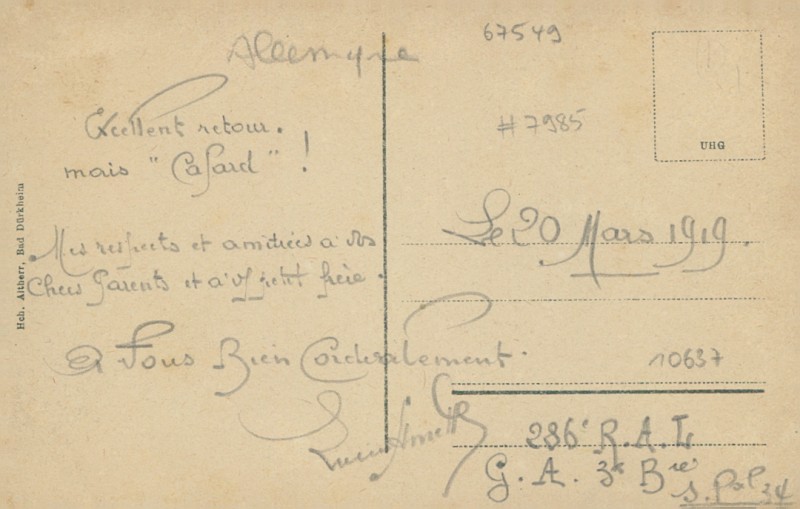 Allemagne
67549
#7985
UHG
Excellent retour.
mais "Cafard" !
Mes respects et amitiées à vos
Chers Parents et à vf petit frère.
à Vous Bien Cordialement.
Le 20 Mars 1919.
10637
286e R.A.L
G.A. 3e Brie
s. Pal 34
Hch. Altherr, Bad Dürkheim